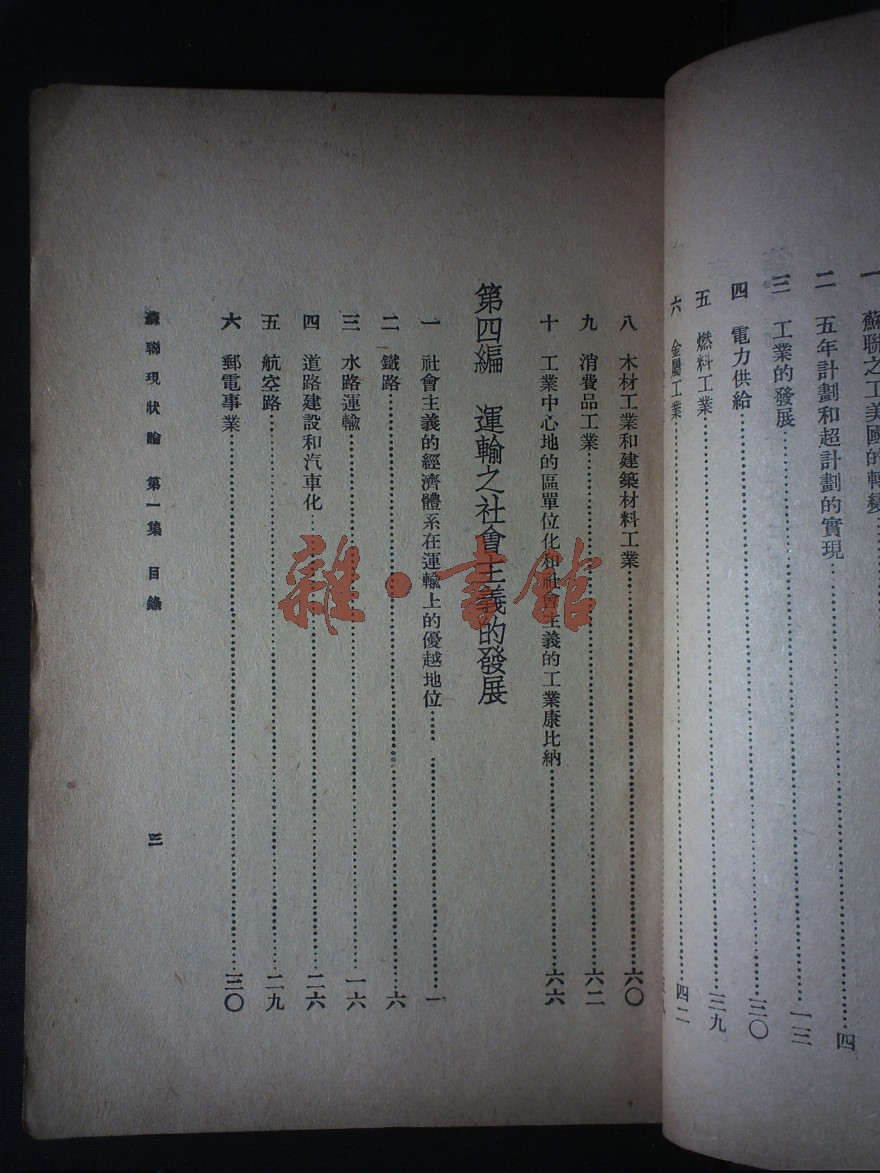 一 蘇聯之工美國的轉變
二 五年計劃和超計劃的實現……四
三 工業的發展……一三
四 電力供給……三〇
五 燃料工業……三九
六 金屬工業……四二
八 木材工業和建築材料工業……六〇
九 消費品工業……六二
十 工業中心地的區單位化和社會主義的工業康比納……六六
第四編 運輸之社會主義的發展
一 社會主義的經濟體系在運輸上的優越地位……一
二 鐵路……六
三 水路運輸……一六
四 道路建設和汽車化……二六
五 航空路……二九
六 郵電事業……三〇
蘇聯現狀論 第一集 目錄 三
雜·書館